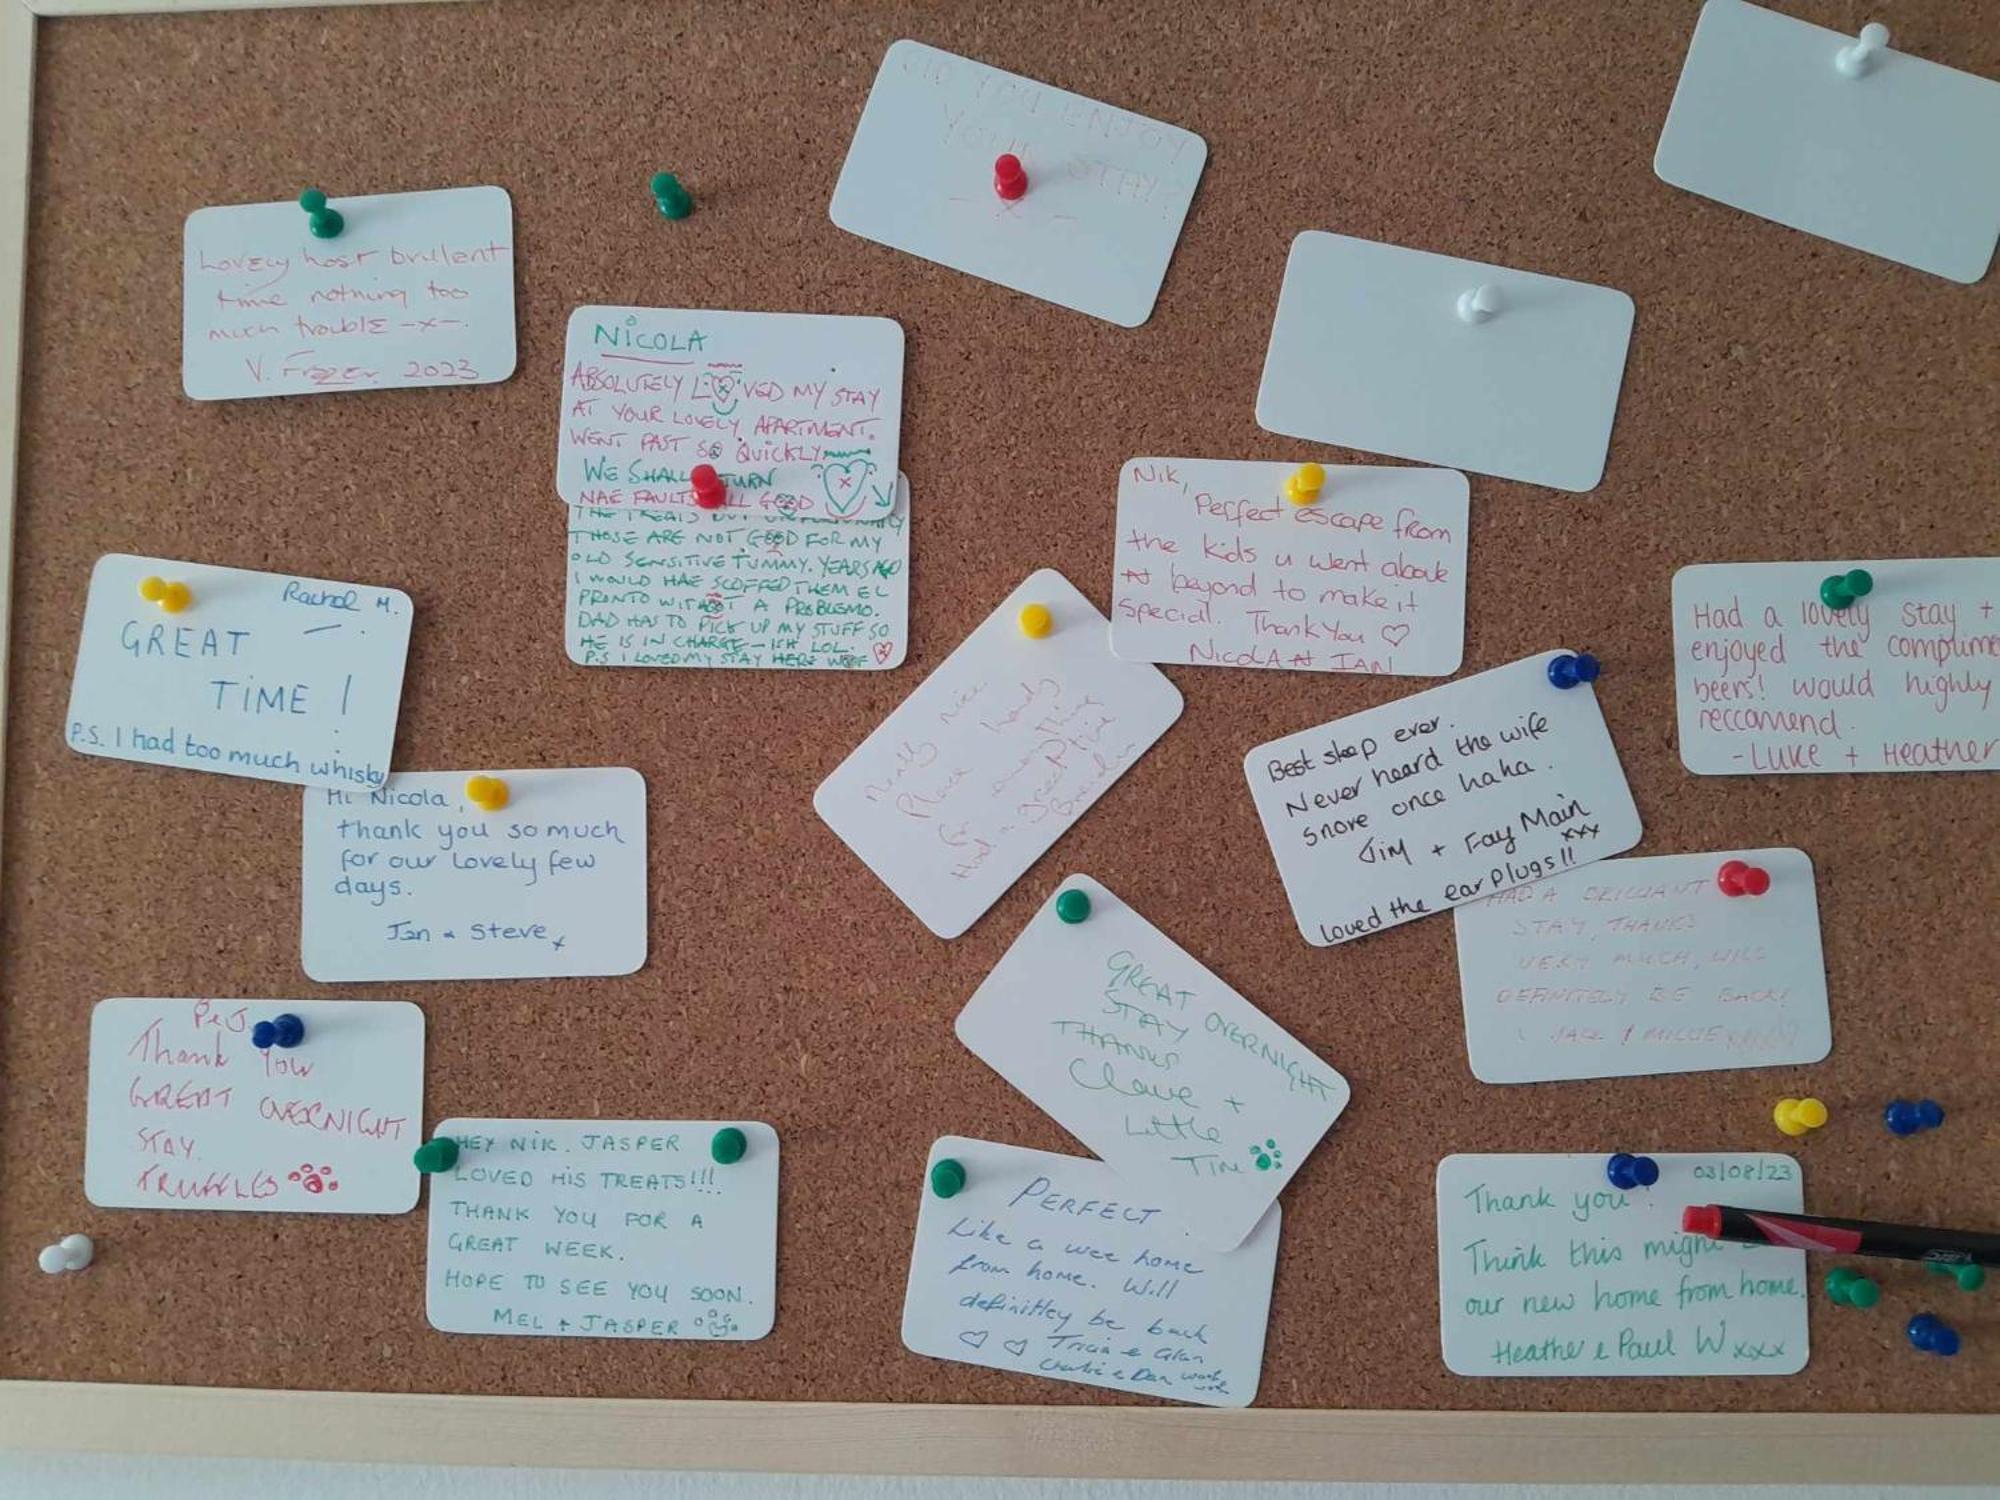 DID YOU ENJOY
YOUR STAY?
- X -
Lovely host brullent
time nothing too
much trouble -x-.
V. Frazer 2023
NiCOLA
ABSOLUTELY LOVED MY STAY
AT YOUR LOVELY APARTMENT.
WENT PAST SO QUICKLY
WE SHALL TURN
NAE FAULTS ALL GOOD
THE TREATS BUT UNFORTUNATLY
THOSE ARE NOT GOOD FOR MY
OLD SENSITIVE TUMMY. YEARS AGO
I WOULD HAE SCOFFED THEM EL
PRONTO WITHOUT A PROBLEMO.
DAD HAS TO PICK UP MY STUFF SO
HE IS IN CHARGE - ISH LOL.
P.S I LOVED MY STAY HERE WOOF
Nik,
Perfect escape from
the kids u went above
N beyond to make it
special. Thank You ♡
NicoLA N IAN
Rachel M.
GREAT
TiME !
P.S. I had too much whisky
Really nice
Place handy
for everything
Had a great time
Had a lovely stay +
enjoyed the complime
beers! would highly
reccomend.
- Luke + Heather
Best sleep ever.
Never heard the wife
snore once haha.
Jim + Fay Main
xxx
loved the ear plugs!!
Hi Nicola,
thank you so much
for our lovely few
days.
Jan & Steve x
HAD A BRILLIANT
STAY, THANKS
VERY MUCH, WILL
DEFINITELY BE BACK!
JACK & MILLIE
GREAT OVERNIGHT
STAY
THANKS
Claire +
Little
Tim
P & J
Thank You
GREAT OVERNIGHT
STAY.
TRUFFLES
HEY NIK. JASPER
LOVED HIS TREATS!!!
THANK YOU FOR A
GREAT WEEK.
HOPE TO SEE YOU SOON.
MEL & JASPER
PERFECT
Like a wee home
from home. Will
definitley be back
♡ ♡ Tricia & Alan
Charlie & Dan woof
woof
03/08/23
Thank you!
Think this might
our new home from home.
Heather & Paul W xxx